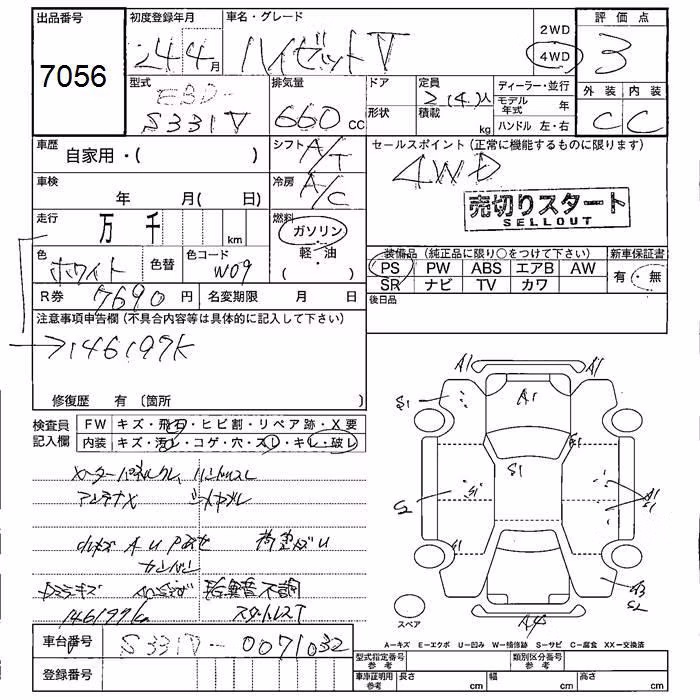 出品番号 初度登録年月 車名・グレード 2WD 4WD 評価点
7056 24 4月 ハイゼットV 3
型式 排気量 ドア 定員 ディーラー・並行 外装 内装
EBD-
S331V 660 cc 形状 2(4)人 積載 kg モデル年式 年 C C
ハンドル 左・右
車歴 自家用・( ) シフト A/T セールスポイント(正常に機能するものに限ります)
4WD
車検 年 月( 日) 冷房 A/C 売切りスタート
SELLOUT
走行 万 千 km 燃料 ガソリン
軽・油
( )
色 ホワイト 色替 色コード W09 装備品(純正品に限り○をつけて下さい) 新車保証書
PS PW ABS エアB AW 有・無
SR ナビ TV カワ
R券 7690 円 名変期限 月 日 後日品
注意事項申告欄(不具合内容等は具体的に記入して下さい)
→146197K
修復歴 有(箇所 )
検査員記入欄 FW キズ・飛石・ヒビ割・リペア跡・X要
内装 キズ・汚レ・コゲ・穴・スレ・キレ・破レ
アンテナX
小キズ A U
カンバン
146199k
A1 A1
S1 A1
S1
S1
S2 A1
S1
S1
S2
A4
スペア
A=キズ E=エクボ U=凹み W=補修跡 S=サビ C=腐食 XX=交換済
車台番号 S331V-0071032
型式指定番号 参考 類別区分番号 参考
登録番号 車庫証明用 参考 長さ cm 幅 cm 高さ cm